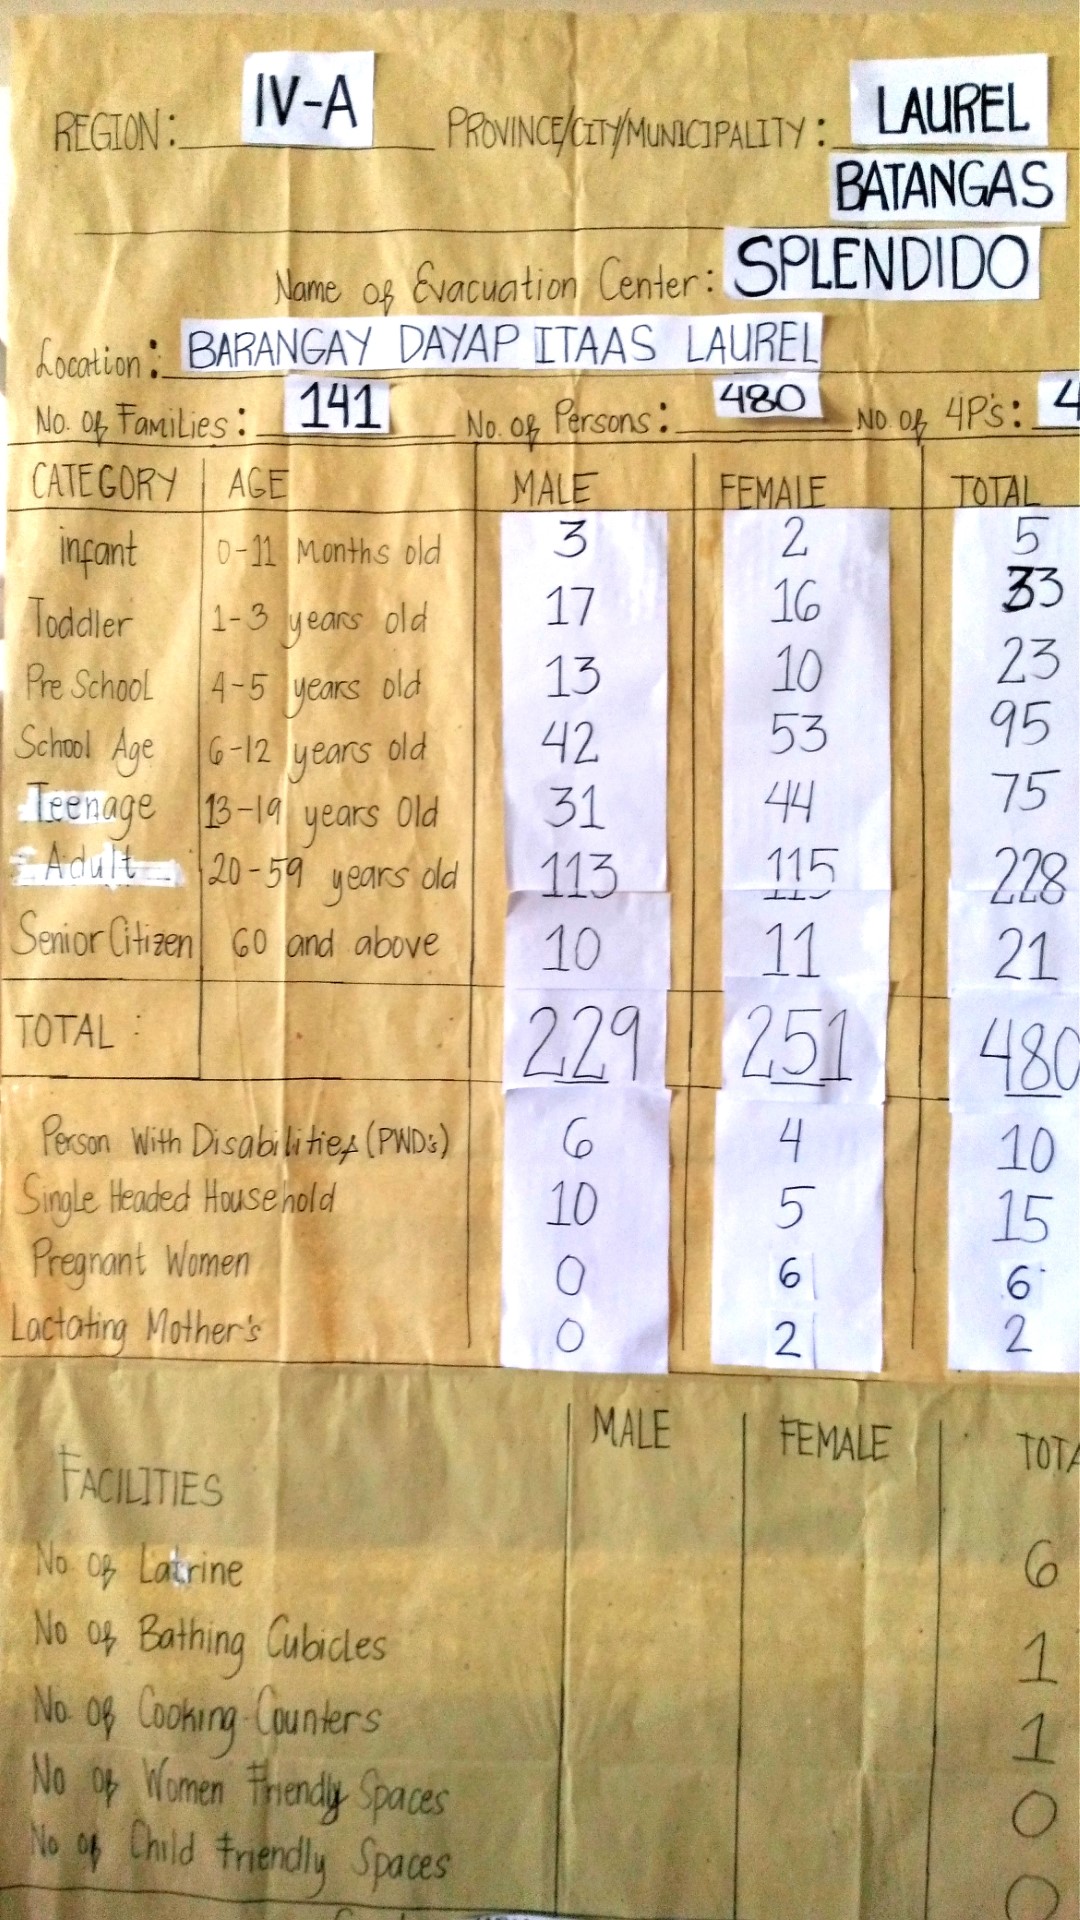 REGION: IV-A PROVINCE/CITY/MUNICIPALITY: LAUREL
BATANGAS
Name of Evacuation Center: SPLENDIDO
Location: BARANGAY DAYAP ITAAS LAUREL
No. of Families: 141 No. of Persons: 480 NO. of 4P's: 4
CATEGORY AGE MALE FEMALE TOTAL
infant 0-11 Months old 3 2 5
Toddler 1-3 years old 17 16 33
Pre School 4-5 years old 13 10 23
School Age 6-12 years old 42 53 95
Teenage 13-19 years Old 31 44 75
Adult 20-59 years old 113 115 228
Senior Citizen 60 and above 10 11 21
TOTAL: 229 251 480
Person With Disabilities (PWD's) 6 4 10
Single Headed Household 10 5 15
Pregnant Women 0 6 6
Lactating Mother's 0 2 2
FACILITIES MALE FEMALE TOTA
No of Latrine 6
No of Bathing Cubicles 1
No. of Cooking Counters 1
No of Women Friendly Spaces 0
No of Child Friendly Spaces 0